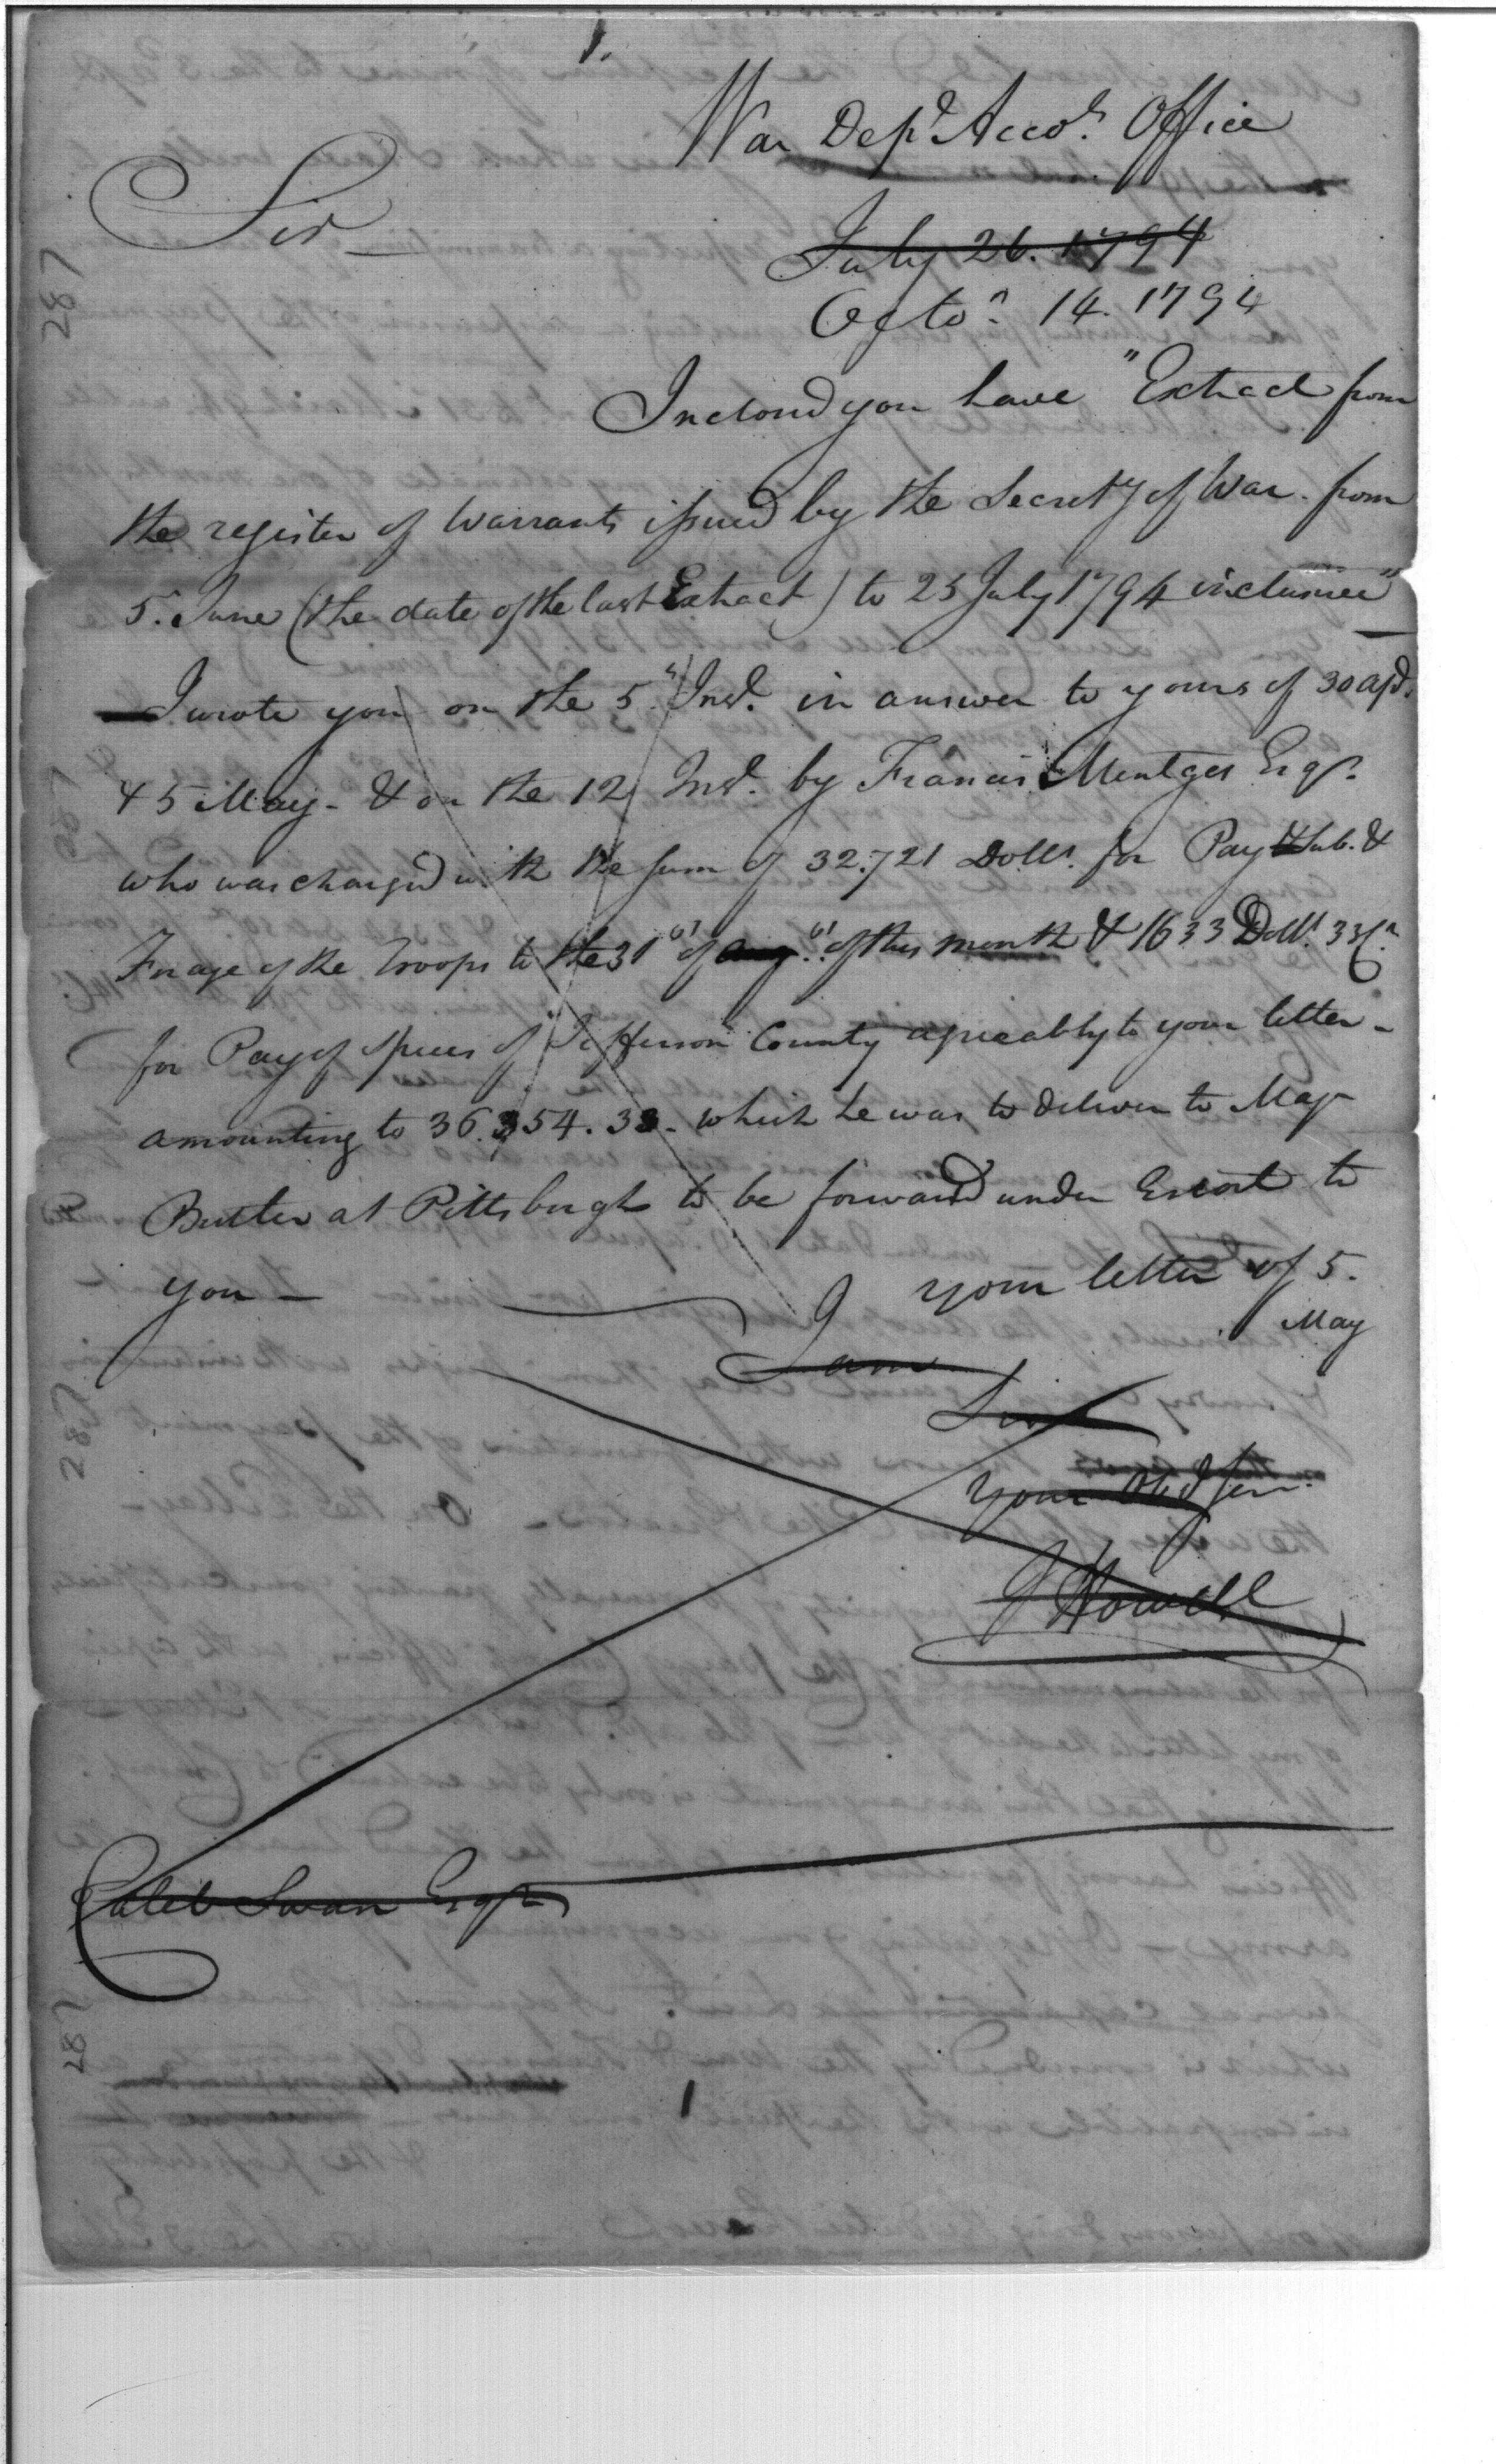 1.
War Dep.t Acco.ts Office
Sir
July 26. 1794
Octo.r 14. 1794
Inclosed you have "Extract from
the register of Warrants issued by the Secret.y of War from
5. June (the date of the last Extract) to 25 July 1794 inclusive"
I wrote you on the 5.th Inst. in answer to yours of 30 ap.l
& 5 May - & on the 12 Inst. by Francis Mentges Esq.r
who was charged with the sum of 32.721 Doll.s for Pay Sub. &
Forage of the Troops to the 31st of aug.st of this month & 1633 Doll.s 33 C.ts
for Pay of Spies of Jefferson County agreeably to your letter -
amounting to 36.354.33 - which he was to deliver to Maj.r
Butler at Pittsburgh to be forward under Escort to
you -
your letter of 5.
May
I am
Sir
Your Obd Serv.
J Howell
Caleb Swan Esq.r
1
287
287
287
287